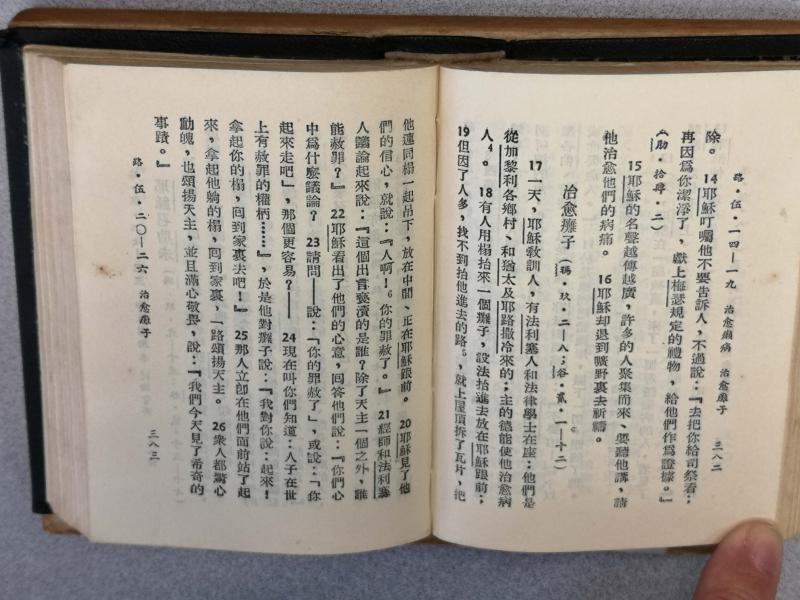 路・伍・一四—一九　治愈癩病　治愈癱子　三八二
除。14耶穌叮囑他不要告訴人，不過說：『去把你給司祭看：
再因爲你潔淨了，獻上梅瑟規定的禮物，給他們作爲證據。』
（肋・拾肆・二）
15耶穌的名聲越傳越廣，許多的人聚集而來、要聽他講，請
他治愈他們的病痛。16耶穌却退到曠野裏去祈禱。
治愈癱子（瑪・玖・二—八；谷・貳・一—十二）
17一天，耶穌教訓人，有法利塞人和法律學士在座：他們是
從加黎利各鄉村、和猶太及耶路撒冷來的；主的德能使他治愈病
人4。18有人用榻抬來一個癱子，設法抬進去放在耶穌跟前；
19但因了人多，找不到抬他進去的路5，就上屋頂拆了瓦片，把
他連同榻一起吊下，放在中間、正在耶穌跟前。20耶穌見了他
們的信心，就說：『人啊！6你的罪赦了。』21經師和法利塞
人議論起來說：『這個出言褻瀆的是誰？除了天主一個之外，誰
能赦罪？』22耶穌看出了他們的心意，回答他們說：『你們心
中爲什麼議論？23請問——說：「你的罪赦了」，或說：「你
起來走吧」，那個更容易？——24現在叫你們知道：人子在世
上有赦罪的權柄……』，於是他對癱子說：『我對你說：起來！
拿起你的榻，回到家裏去吧！』25那人立卽在他們面前站了起
來，拿起他躺的榻，回到家裏，一路頌揚天主。26衆人都驚心
動魄，也頌揚天主，並且滿心敬畏，說：『我們今天見了希奇的
事蹟。』
路・伍・二〇—二六　治愈癱子　三八三